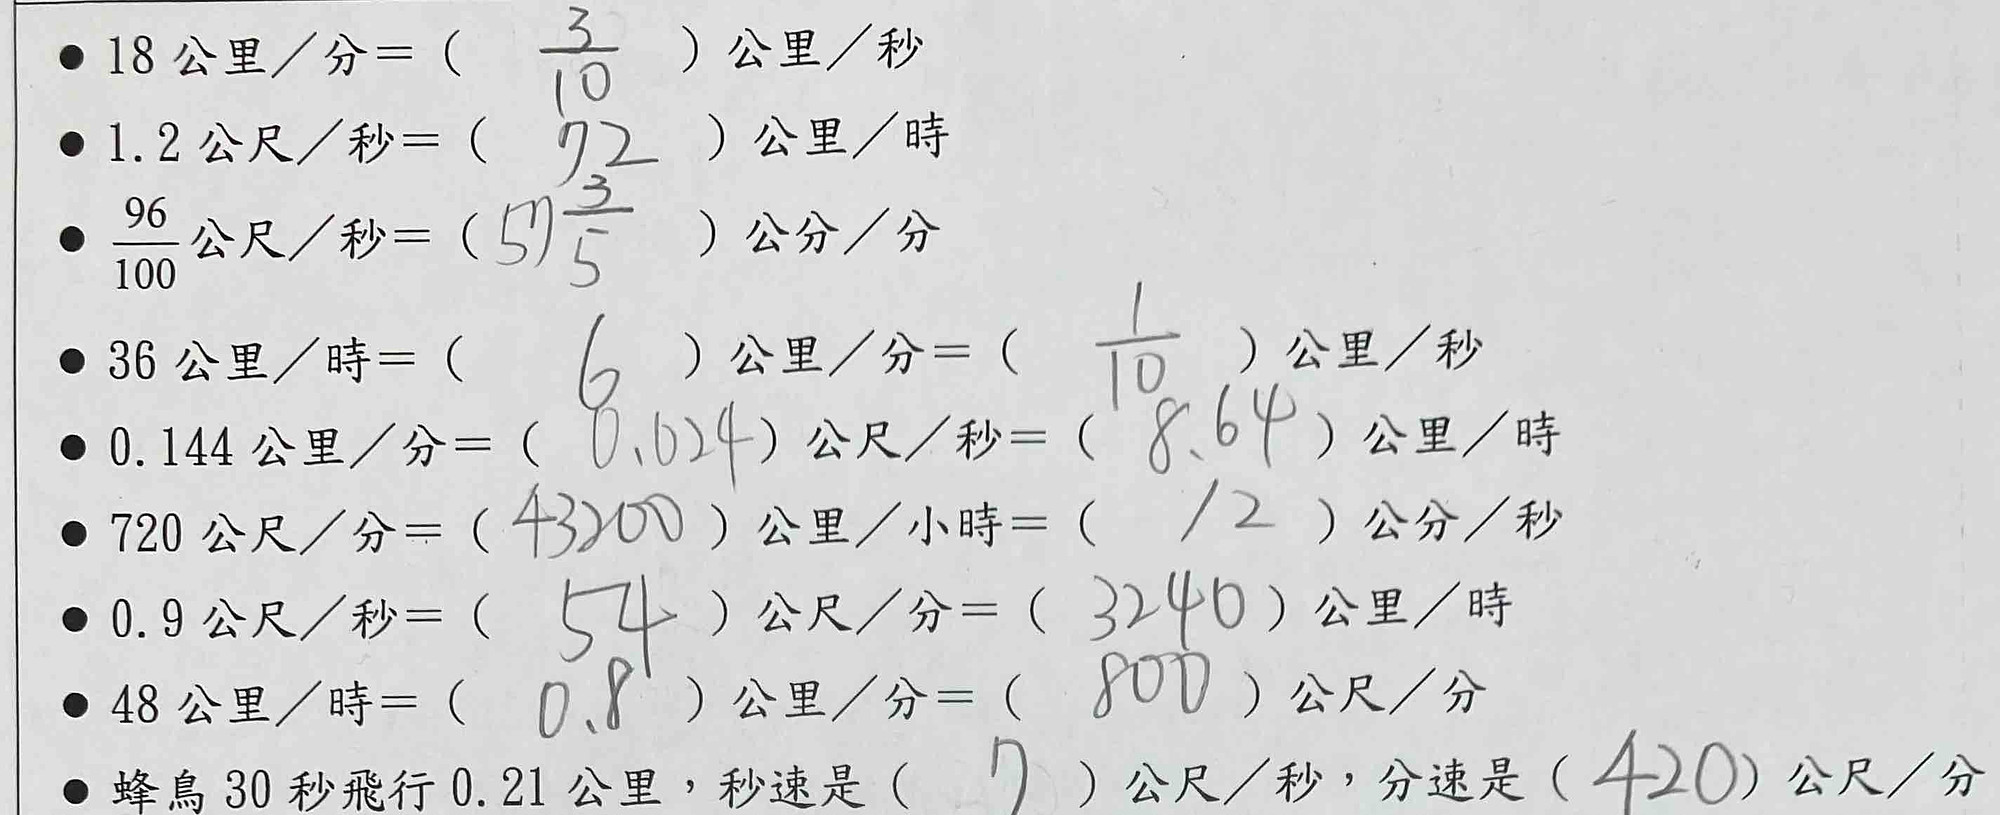 ● 18 公里／分＝（ 3/10 ）公里／秒
● 1.2 公尺／秒＝（ 72 ）公里／時
● 96/100 公尺／秒＝（ 57 3/5 ）公分／分
● 36 公里／時＝（ 6 ）公里／分＝（ 1/10 ）公里／秒
● 0.144 公里／分＝（ 0.024 ）公尺／秒＝（ 8.64 ）公里／時
● 720 公尺／分＝（ 43200 ）公里／小時＝（ 12 ）公分／秒
● 0.9 公尺／秒＝（ 54 ）公尺／分＝（ 3240 ）公里／時
● 48 公里／時＝（ 0.8 ）公里／分＝（ 800 ）公尺／分
● 蜂鳥 30 秒飛行 0.21 公里，秒速是（ 7 ）公尺／秒，分速是（ 420 ）公尺／分